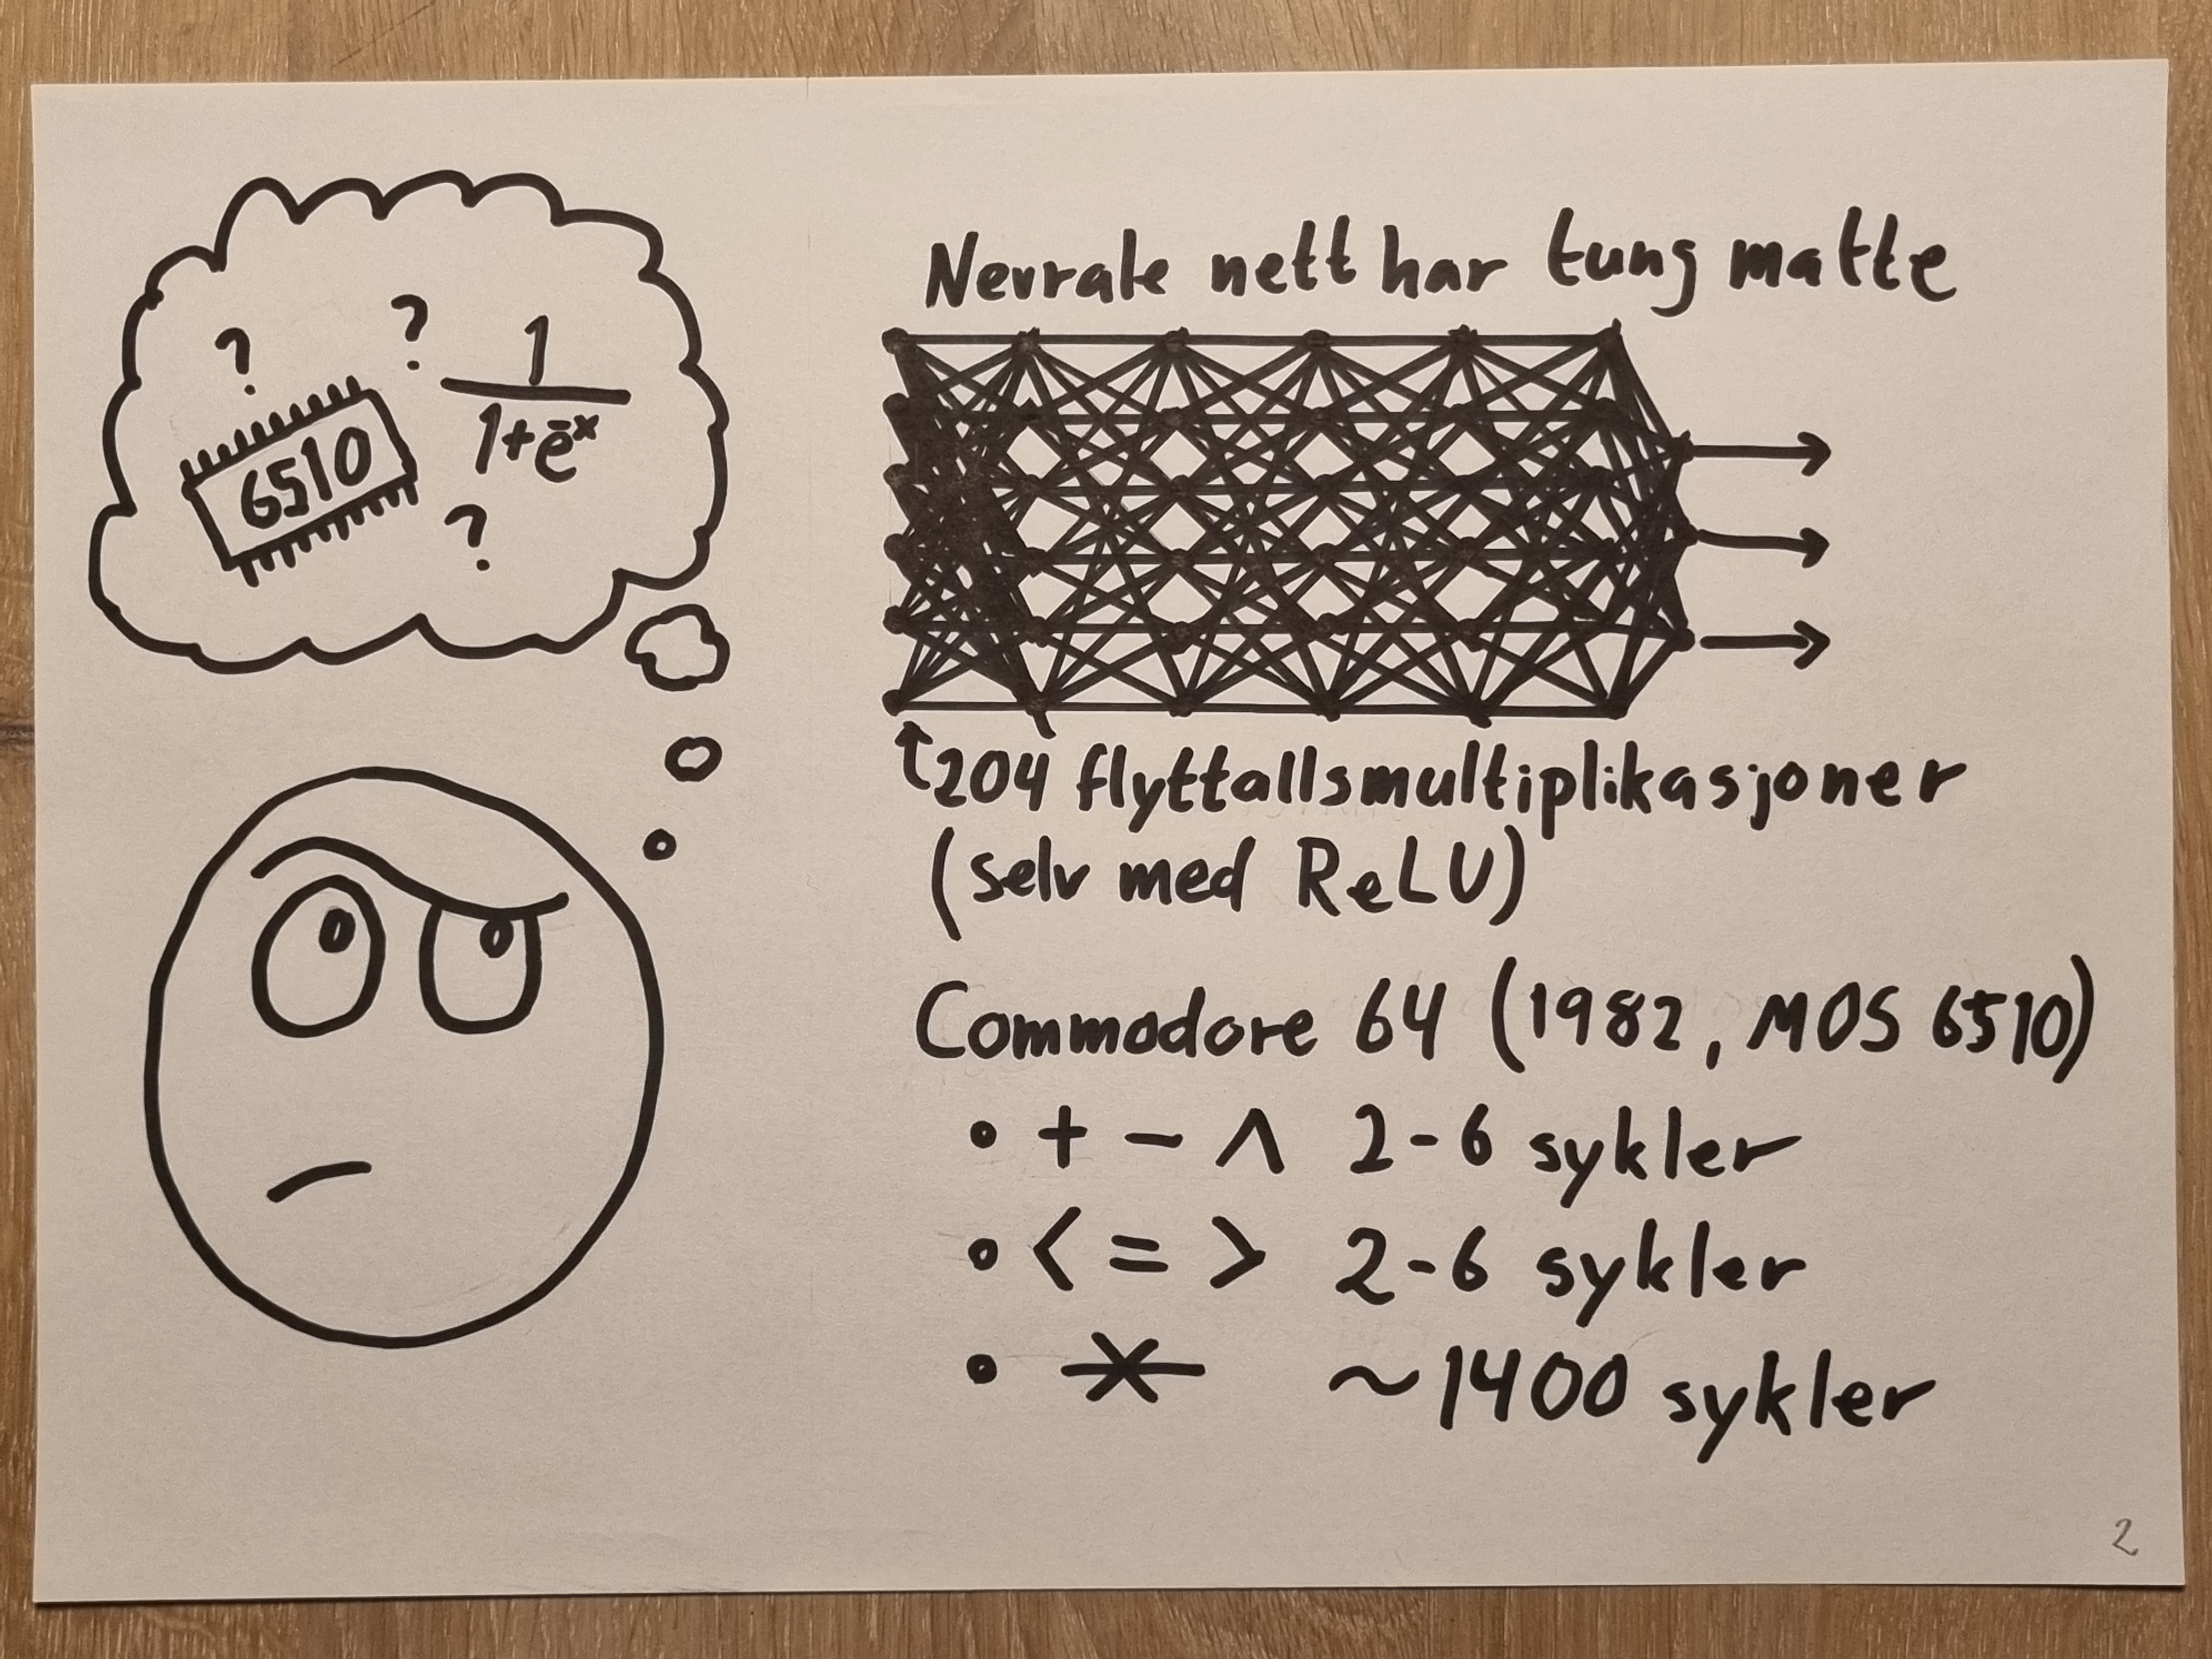 ?
?
6510
1
1+e⁻ˣ
?
Nevrale nett har tung matte
204 flyttallsmultiplikasjoner
(selv med ReLU)
Commodore 64 (1982, MOS 6510)
• + - ∧ 2-6 sykler
• < = > 2-6 sykler
• * ~1400 sykler
2